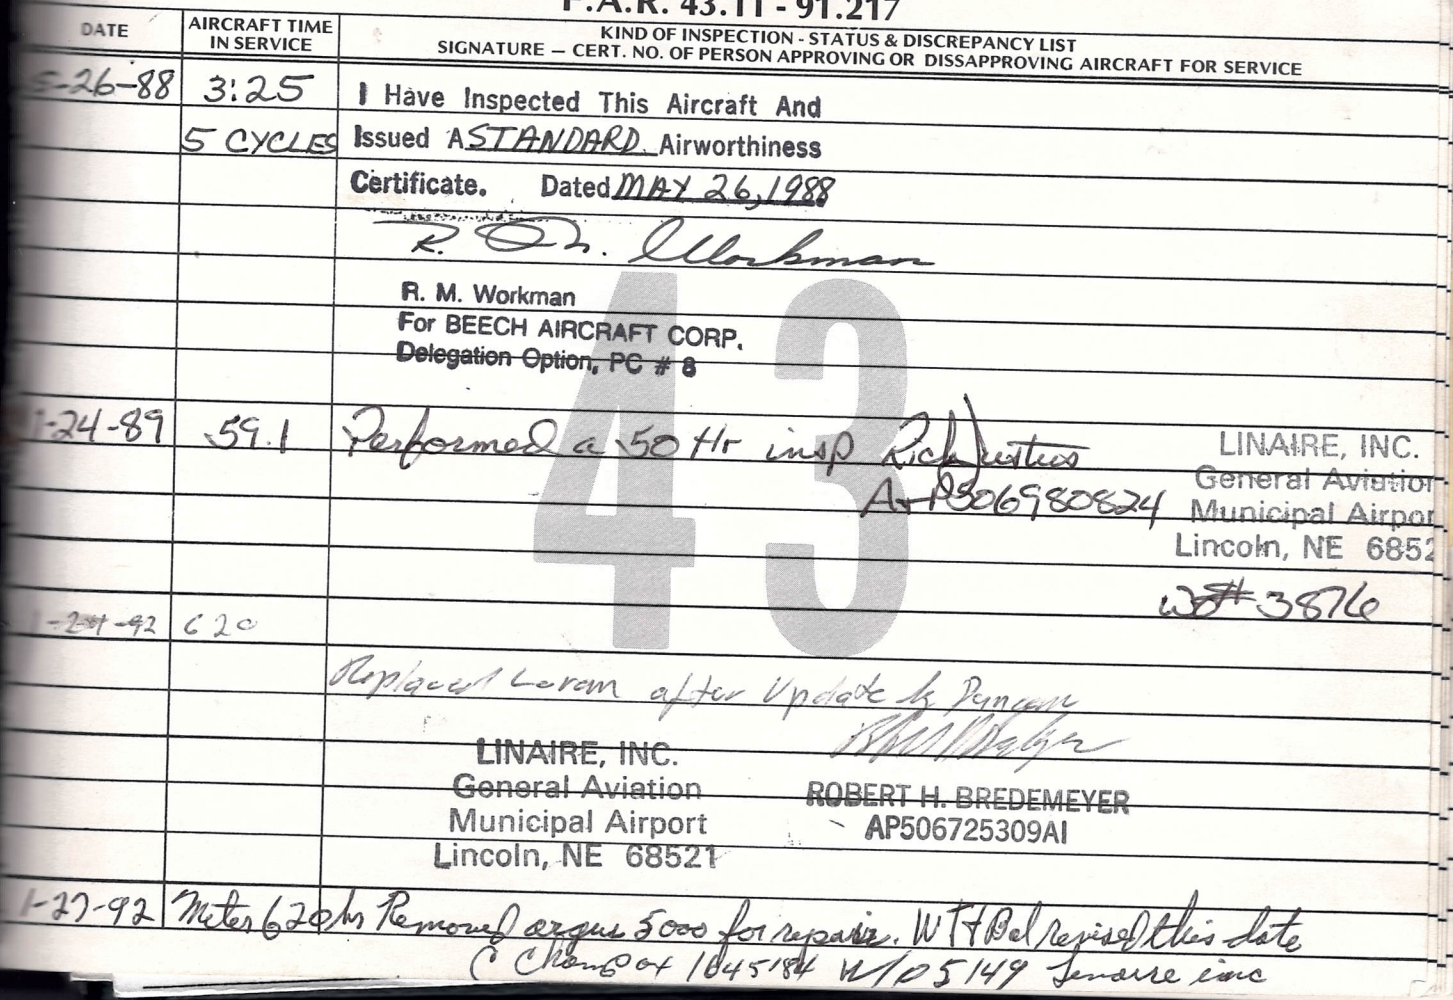 F.A.R. 43.11 - 91.217
DATE
AIRCRAFT TIME
IN SERVICE
KIND OF INSPECTION - STATUS & DISCREPANCY LIST
SIGNATURE — CERT. NO. OF PERSON APPROVING OR DISSAPPROVING AIRCRAFT FOR SERVICE
5-26-88 3:25 I Have Inspected This Aircraft And
5 CYCLES Issued A STANDARD Airworthiness
Certificate. Dated MAY 26, 1988
R. M. Workman
R. M. Workman
For BEECH AIRCRAFT CORP.
Delegation Option, PC # 8
43
1-24-89 59.1 Performed a 50 Hr insp Rick Justus
A+P506980824
LINAIRE, INC.
General Aviation
Municipal Airpor
Lincoln, NE 6852
WO# 3876
1-24-92 620
Replaced Loran after Update by Duncan
LINAIRE, INC.
General Aviation
Municipal Airport
Lincoln, NE 68521
ROBERT H. BREDEMEYER
AP506725309AI
1-27-92 Meter 620 hrs Removed argus 5000 for repair. WT+Bal revised this date
C 1645184 W/O 5149 inc